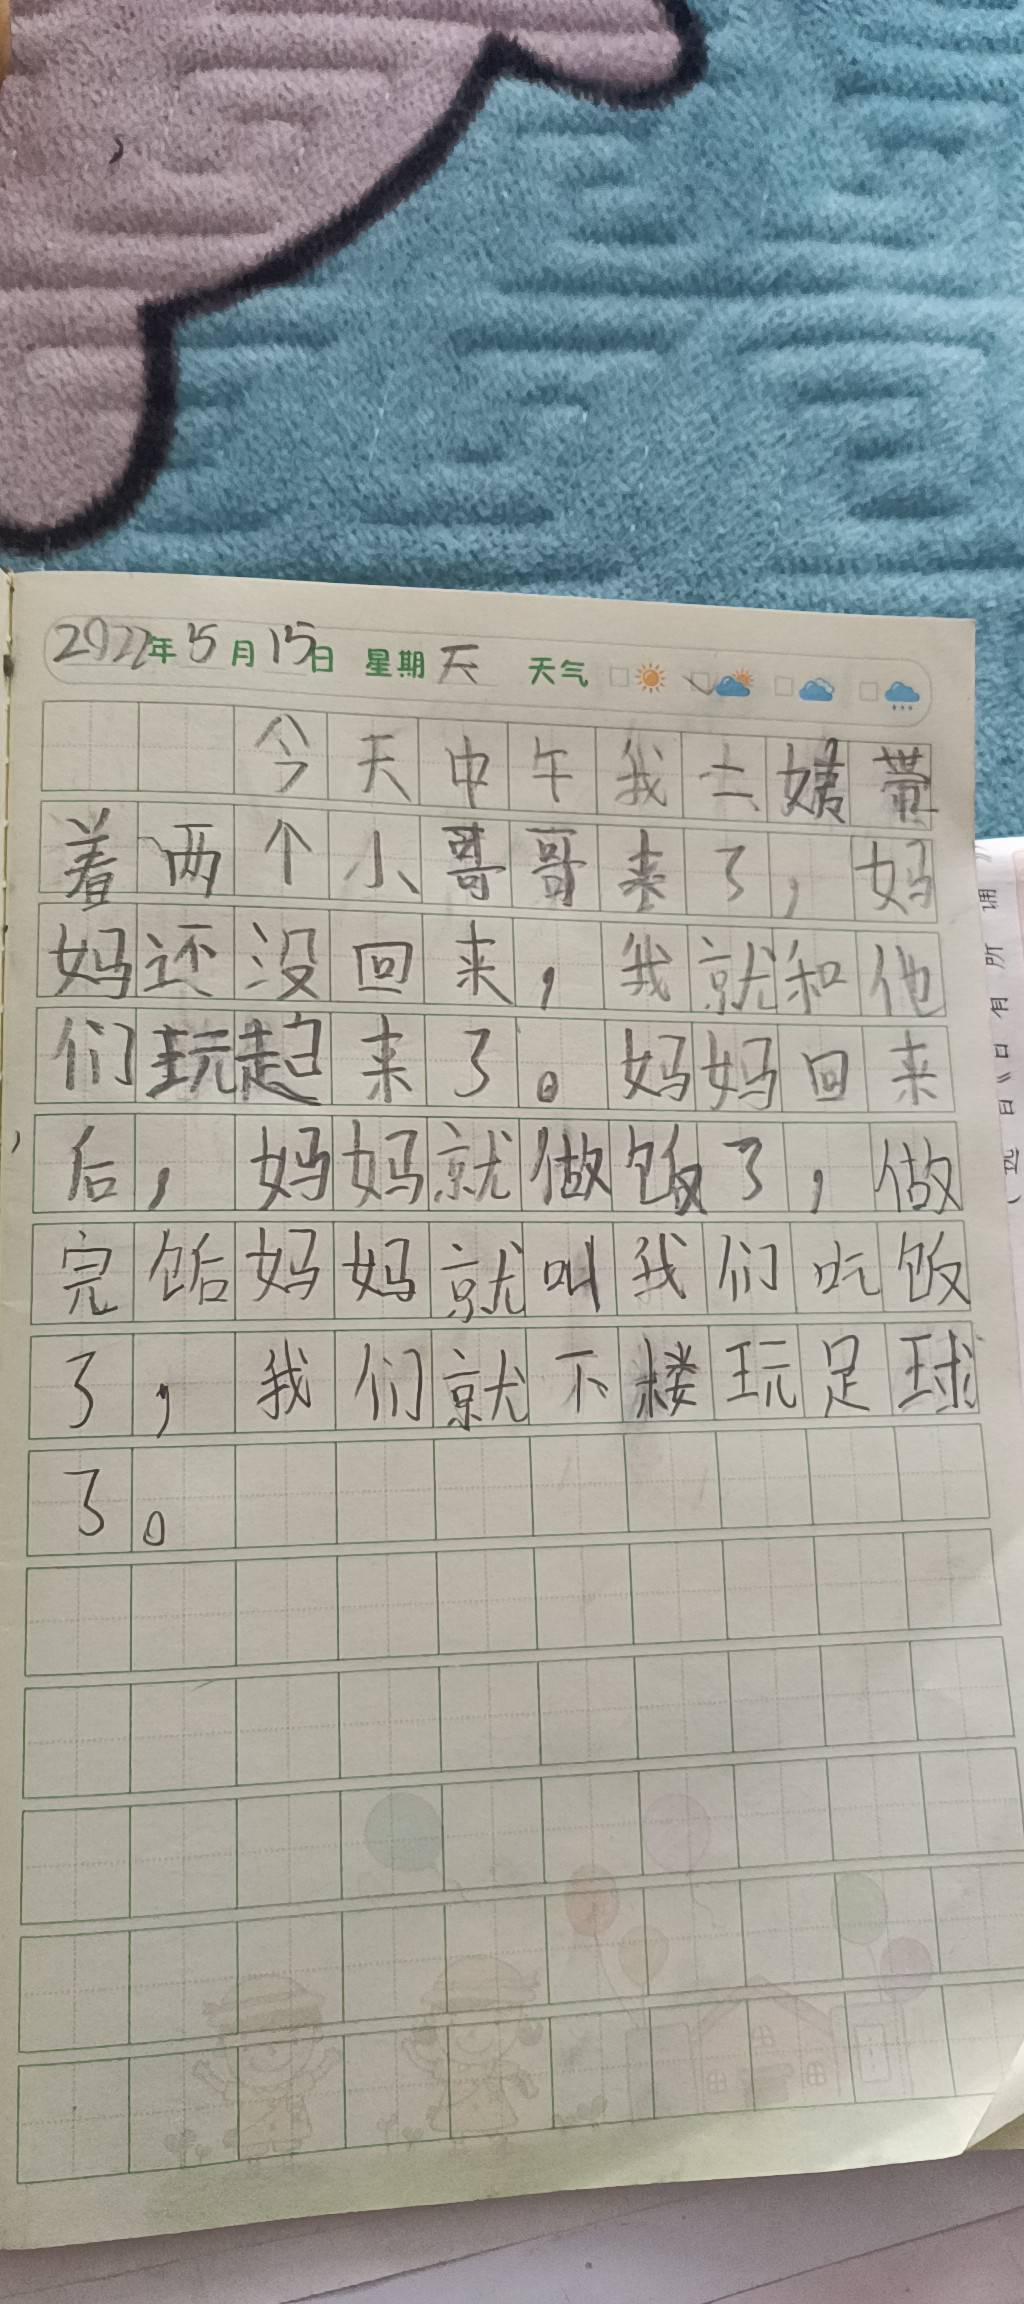 2022年5月15日 星期天 天气
今天中午我二姨带
着两个小哥哥来了，妈
妈还没回来，我就和他
们玩起来了。妈妈回来
后，妈妈就做饭了，做
完饭妈妈就叫我们吃饭
了，我们就下楼玩足球
了。
诵
所
有
日